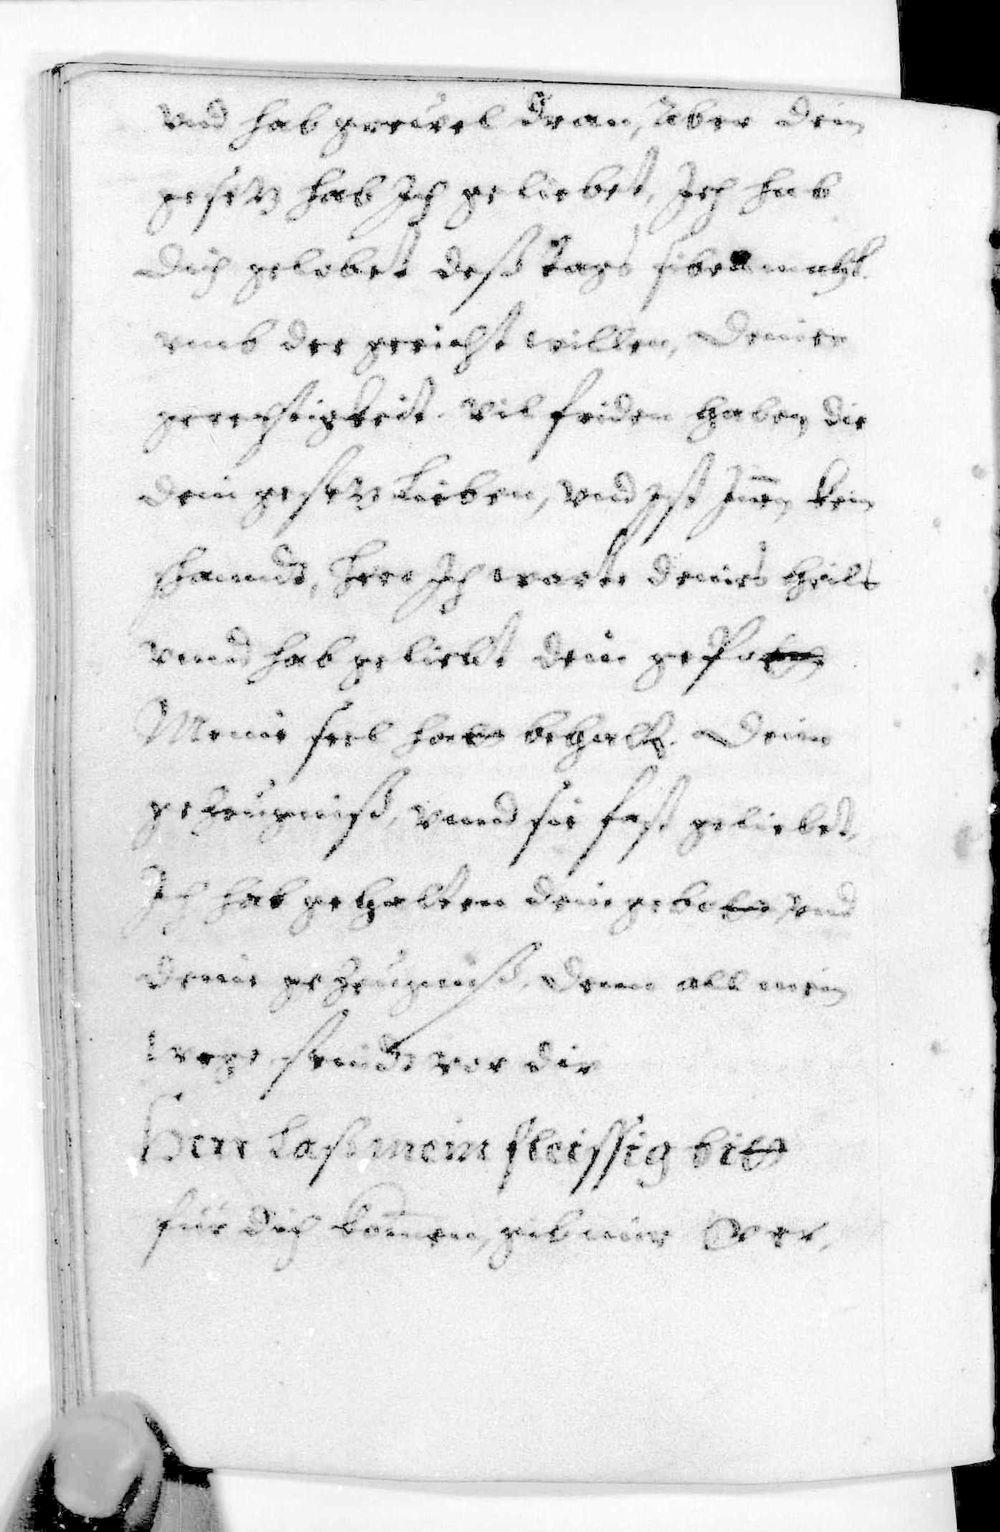 Vnd hab greüwel dran, Aber dein
gesetz hab Ich geliebet, Ich hab
dich gelobet deß tags siben mahl
vmb der gericht willen, deiner
gerechtigkeit. Vil friden haben die
dein gesetz lieben, vnd ist Inen kein
schanndt, Herr Ich warte deines heils
vnnd hab geliebt dein gesetz
Meine seel hat behalten. deine
gezeügniß, vnnd sie fast geliebet,
Ich hab gehalten dein gebot, vnd
deine gezeügniß, denn all mein
wege seindt vor dir
Herr Lasz mein fleissig bitt
für dich komen, gib mir Ver,